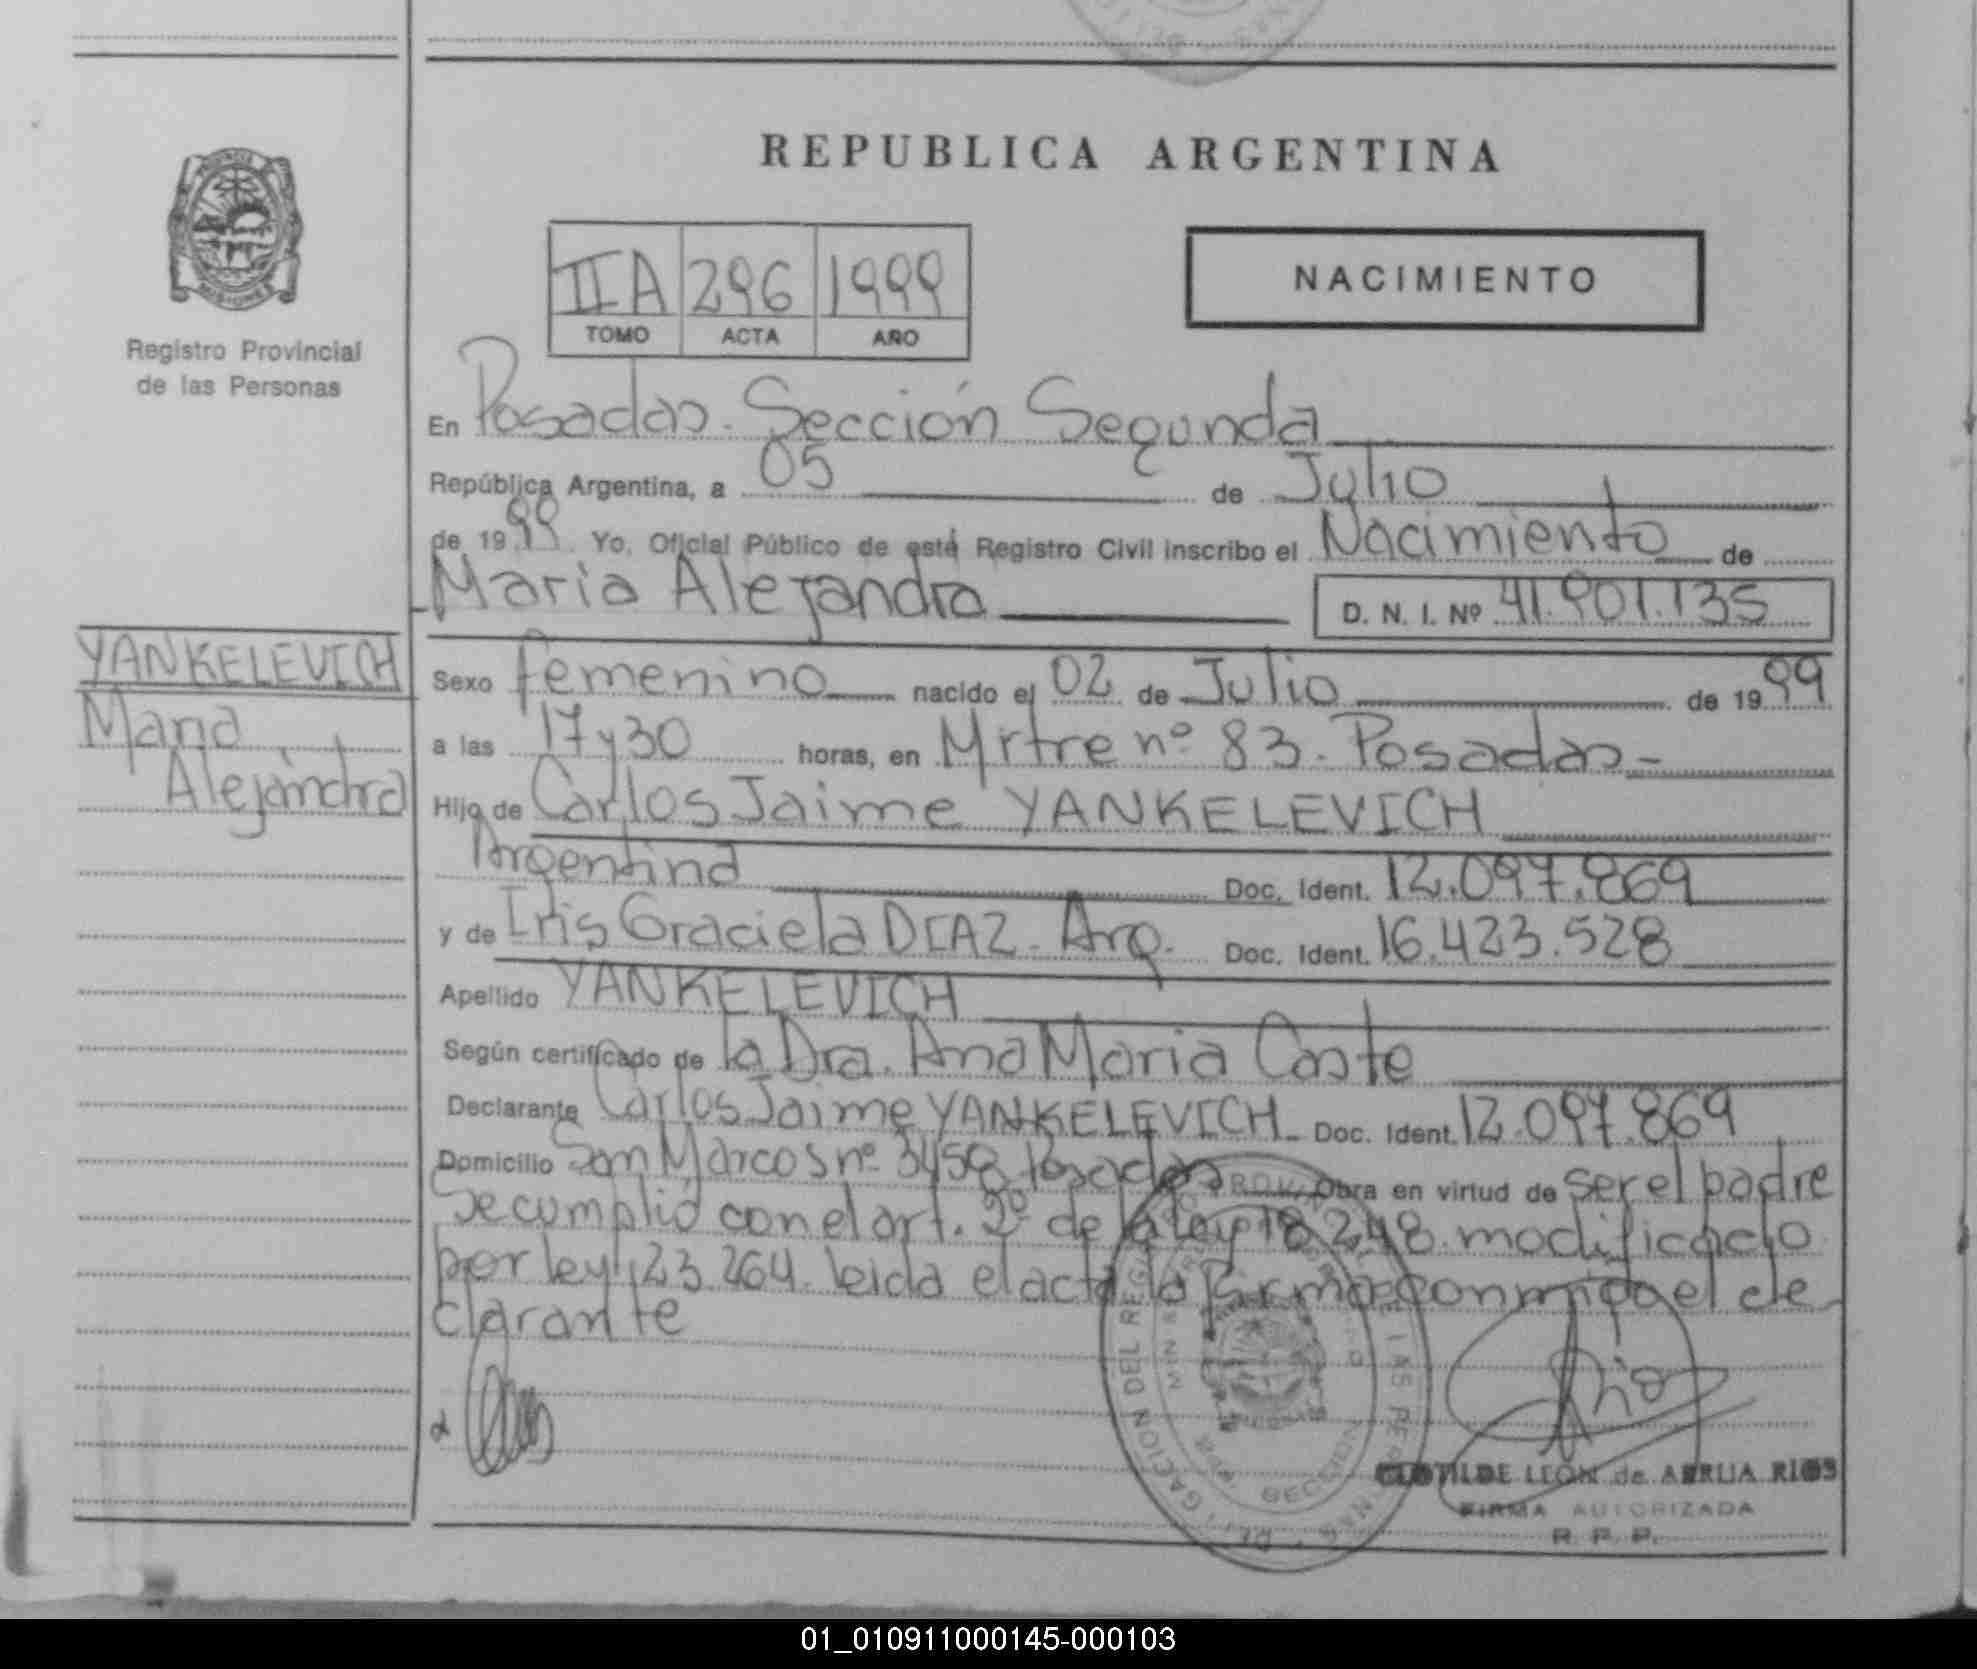 REPUBLICA ARGENTINA
MISIONES
Registro Provincial
de las Personas
IIA 296 1999
TOMO ACTA AÑO
NACIMIENTO
En Posadas. Sección Segunda
República Argentina, a 05 de Julio
de 1999 Yo, Oficial Público de este Registro Civil inscribo el Nacimiento de
Maria Alejandra D. N. I. Nº 41.901.135
YANKELEVICH
Maria
Alejandra
Sexo femenino nacido el 02 de Julio de 1999
a las 17 y 30 horas, en Mitre nº 83. Posadas-
Hijo de Carlos Jaime YANKELEVICH
Argentina Doc. Ident. 12.097.869
y de Iris Graciela DIAZ. Arg. Doc. Ident. 16.423.528
Apellido YANKELEVICH
Según certificado de la Dra. Ana Maria Coste
Declarante Carlos Jaime YANKELEVICH Doc. Ident. 12.097.869
Domicilio San Marcos nº 3458 Posadas Obra en virtud de ser el padre
Se cumplió con el art. 2º de la ley 18.248 modificado
por ley 23.264. leida el acta la firma conmigo el de
clarante
DELEGACION DEL REGISTRO LAS PERSONAS
SECCION
CLOTILDE LEON de ABRLIA RIOS
FIRMA AUTORIZADA
R. P. P.
01_010911000145-000103